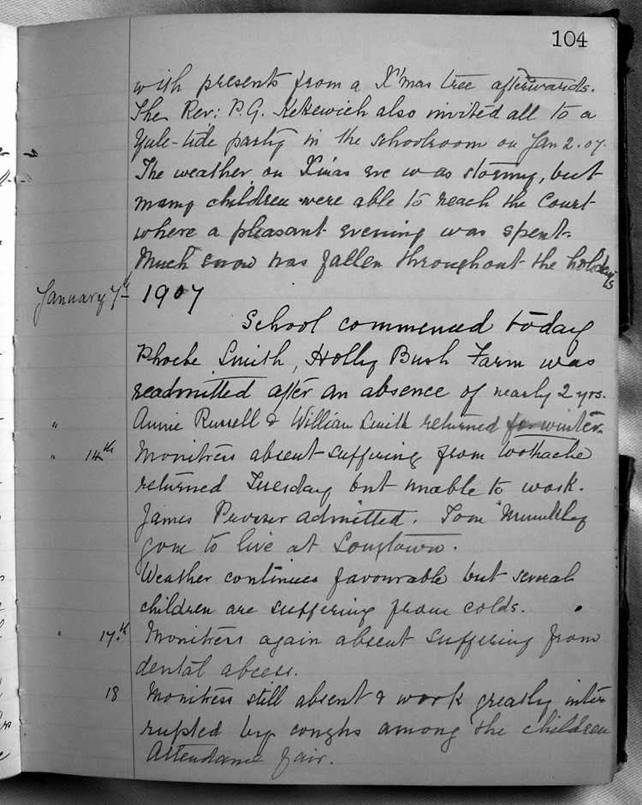 104
with presents from a X'mas tree afterwards.
The Rev: P.G. Kekewich also invited all to a
Yule-tide party in the schoolroom on Jan 2. 07.
The weather on Xmas eve was stormy, but
many children were able to reach the Court
where a pleasant evening was spent.
Much snow has fallen throughout the holidays
January 7th 1907
School commenced today
Phoebe Smith, Holly Bush Farm was
readmitted after an absence of nearly 2 yrs.
" Annie Russell & William Smith returned for winter.
" 14th Monitress absent suffering from toothache
returned Tuesday but unable to work.
James admitted. Tom
gone to live at Longtown.
Weather continues favourable but several
children are suffering from colds.
" 17th Monitress again absent suffering from
dental abcess.
18 Monitress still absent & work greatly inter
rupted by coughs among the children
Attendance fair.